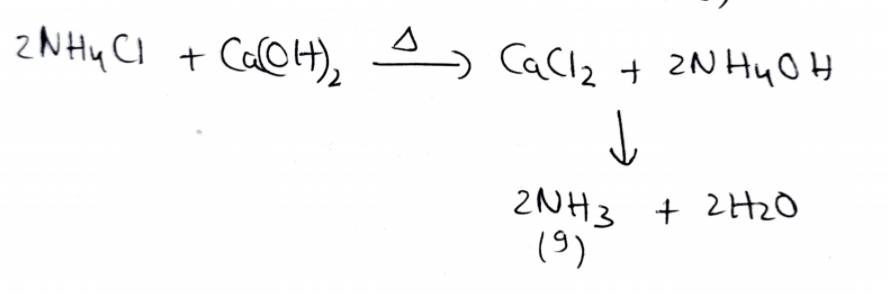 2NH4Cl + Ca(OH)2 Δ→ CaCl2 + 2NH4OH
↓
2NH3 + 2H2O
(g)